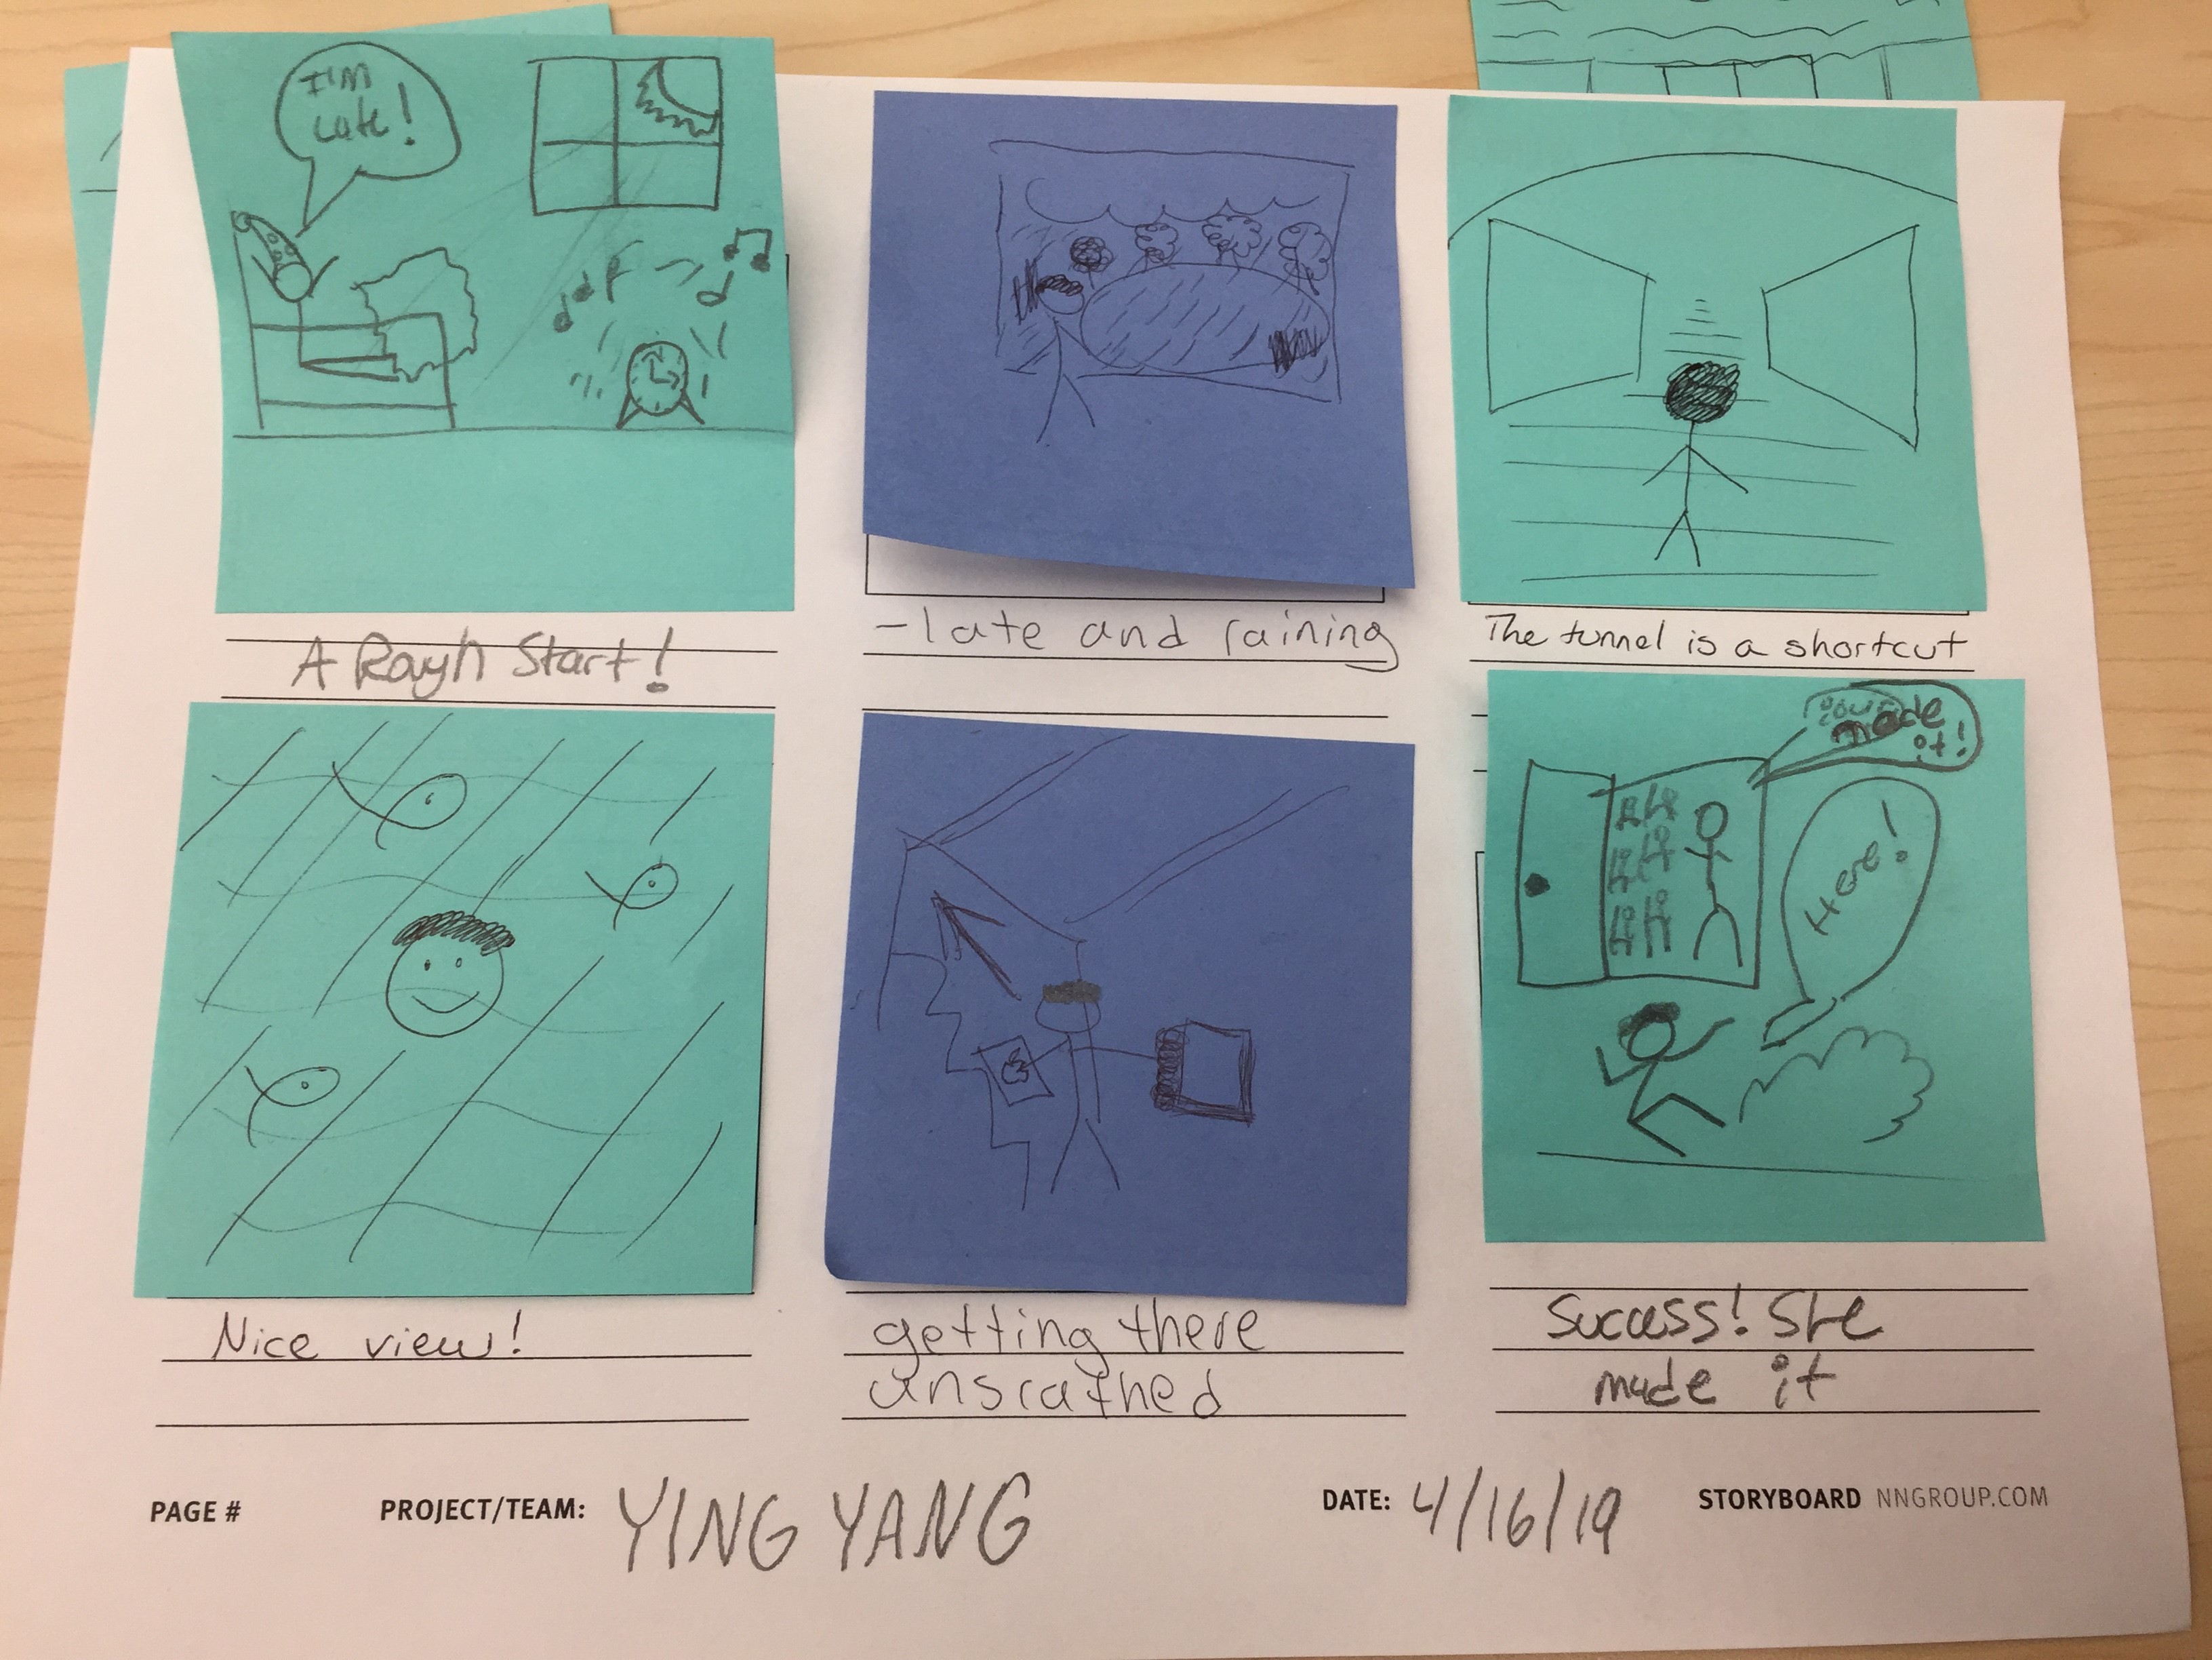 I'm
Late!
A Rough Start!
-late and raining
The tunnel is a shortcut
made
it!
Here!
Nice view!
getting there
unscathed
Success! She
made it
PAGE #
PROJECT/TEAM: YING YANG
DATE: 4/16/19
STORYBOARD NNGROUP.COM